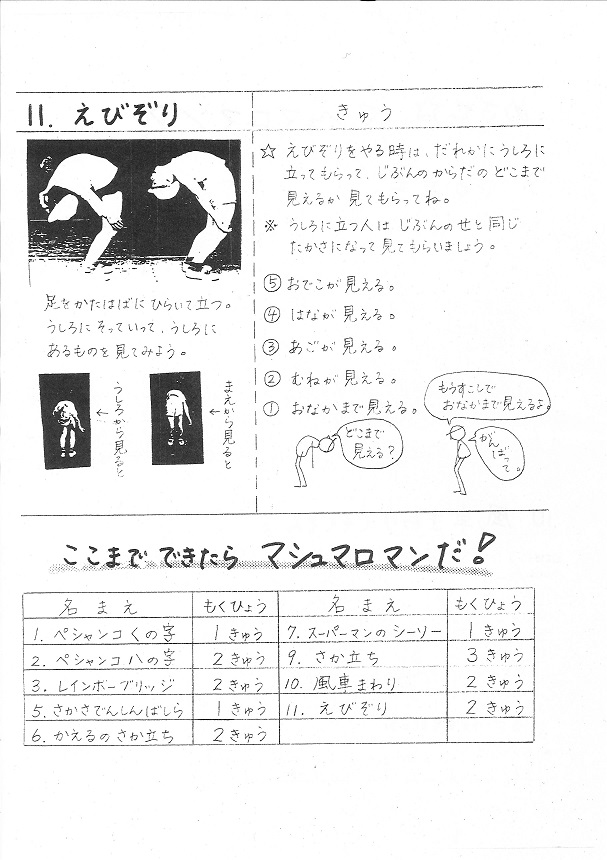 11. えびぞり
きゅう
☆ えびぞりをやる時は、だれかにうしろに
立ってもらって、じぶんのからだのどこまで
見えるか 見てもらってね。
※ うしろに立つ人は じぶんのせと同じ
たかさになって 見てもらいましょう。
⑤ おでこが見える。
④ はなが見える。
③ あごが見える。
② むねが見える。
① おなかまで見える。
足をかたはばに ひらいて立つ。
うしろに そっていって、うしろに
あるものを 見てみよう。
まえから見ると
うしろから見ると
どこまで
見える？
もうすこしで
おなかまで見えるよ。
がん
ばっ
て。
ここまで できたら マシュマロマンだ！
名まえ もくひょう 名まえ もくひょう
1. ペシャンコくの字 1きゅう 7. スーパーマンのシーソー 1きゅう
2. ペシャンコ八の字 2きゅう 9. さか立ち 3きゅう
3. レインボーブリッジ 2きゅう 10. 風車まわり 2きゅう
5. さかさでんしんばしら 1きゅう 11. えびぞり 2きゅう
6. かえるのさか立ち 2きゅう